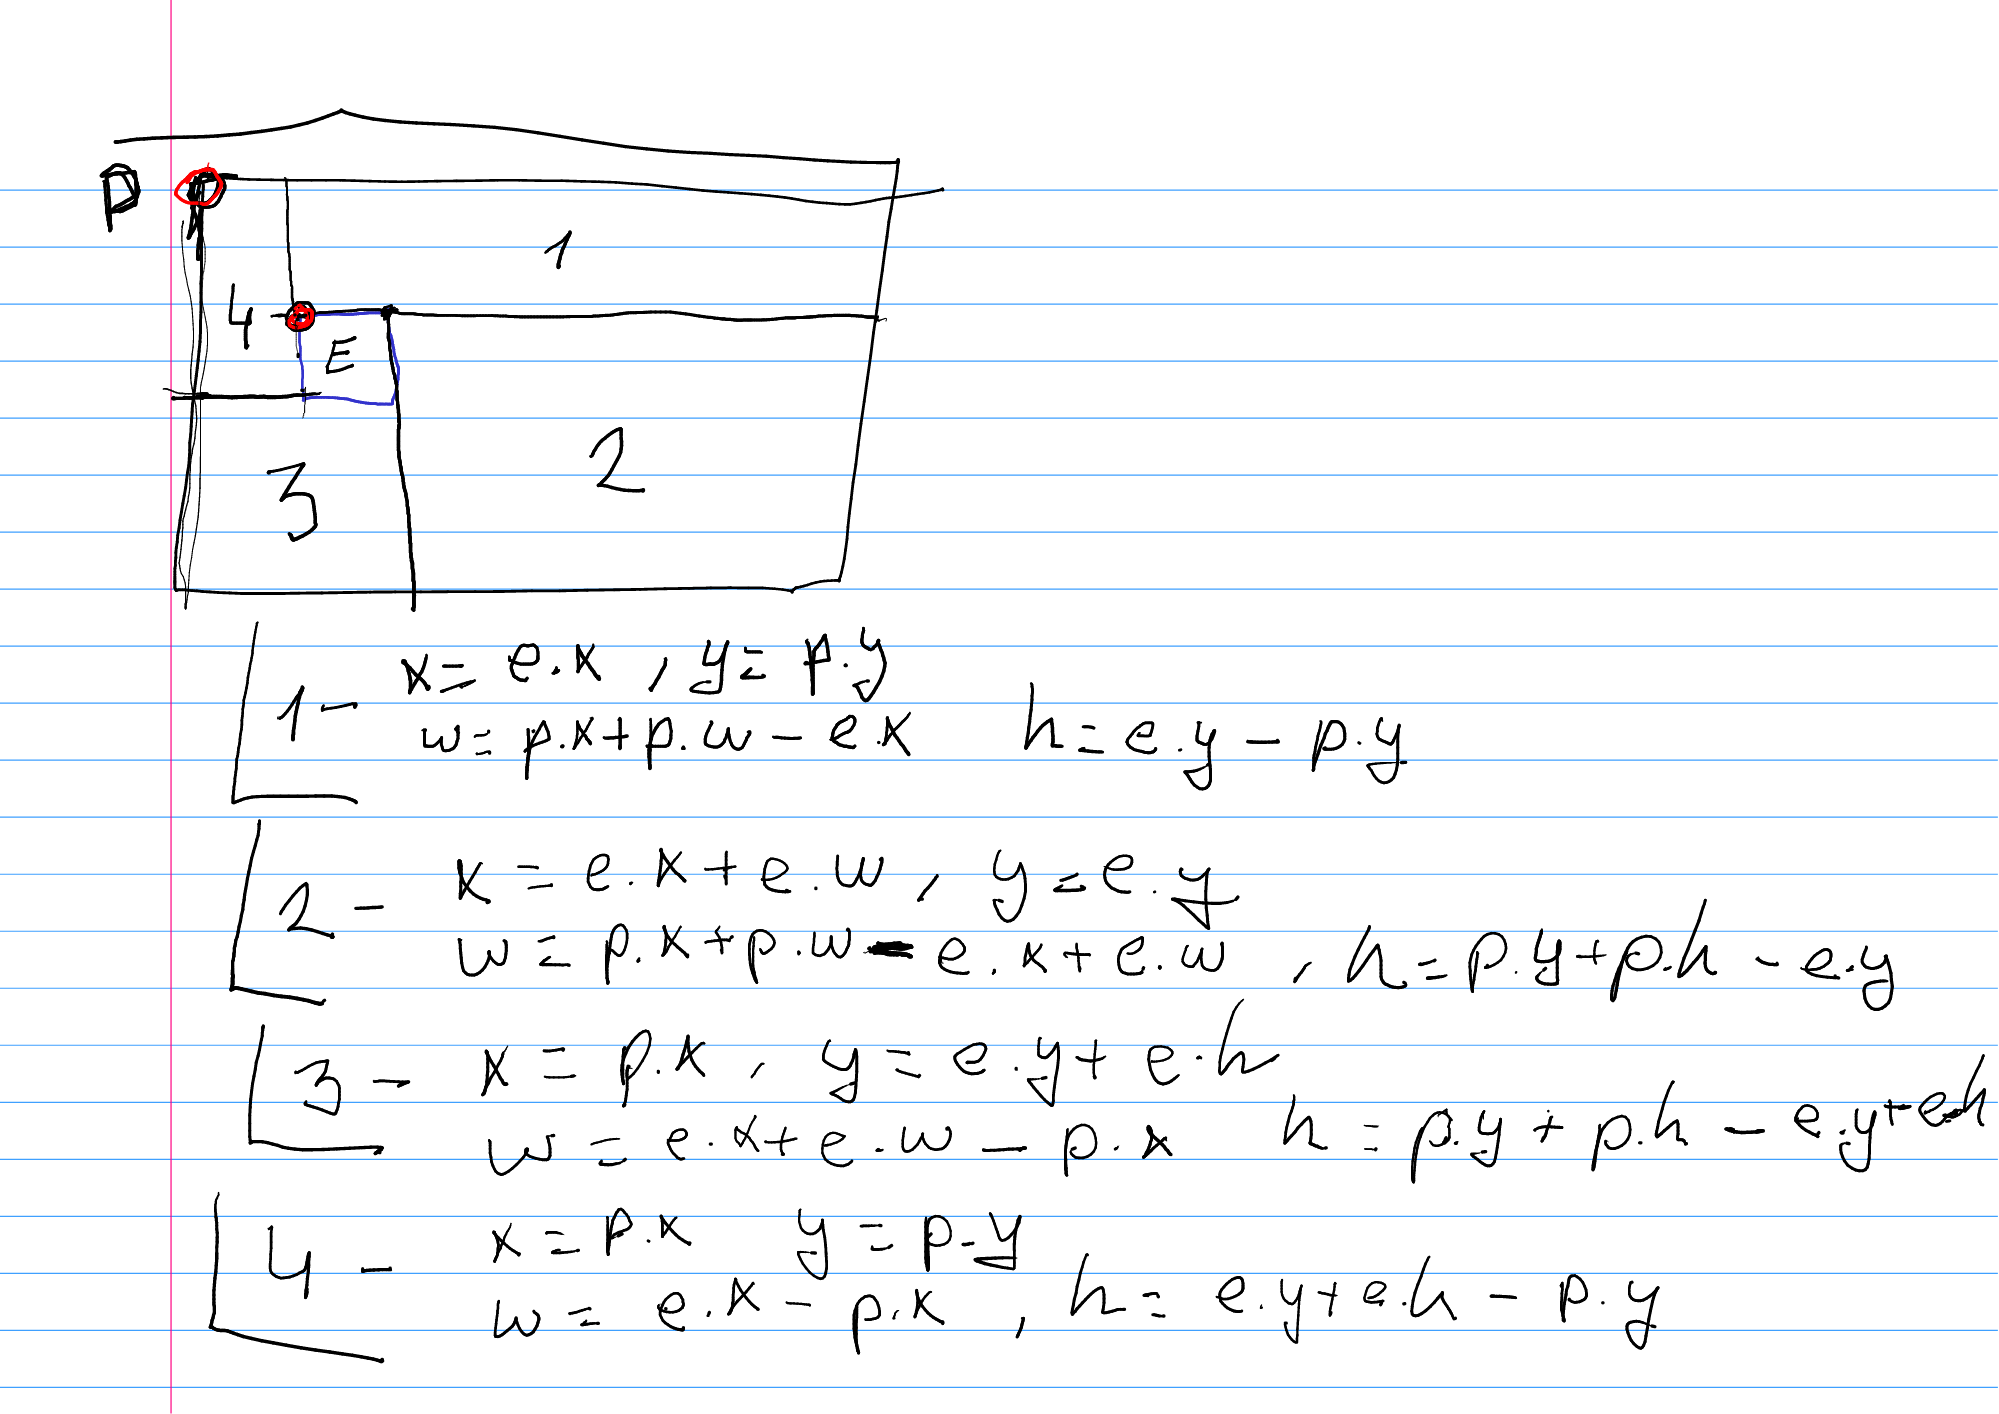 P
1
4
E
2
3
1- x= e.x , y= p.y
w= p.x+p.w - e.x h= e.y - p.y
2- x = e.x+e.w , y=e.y
w= p.x+p.w - e.x+e.w , h= p.y+p.h - e.y
3- x = p.x , y= e.y+ e.h
w = e.x+e.w - p.x h = p.y + p.h - e.y+e.h
4- x= p.x y = p.y
w= e.x - p.x , h= e.y+e.h - p.y